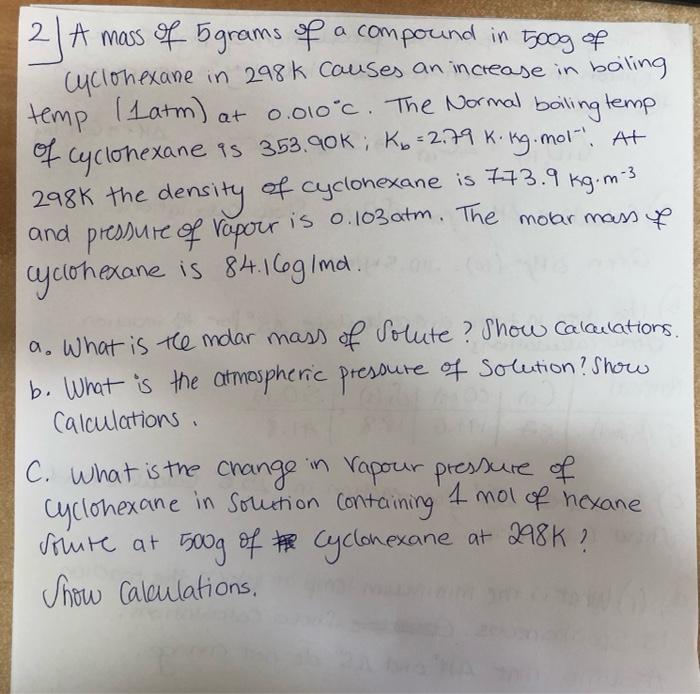 2) A mass of 5grams of a compound in 500g of
cyclohexane in 298K causes an increase in boiling
temp (1atm) at 0.010°C. The Normal boiling temp
of cyclohexane is 353.90K; Kb = 2.79 K·kg·mol⁻¹. At
298K the density of cyclohexane is 773.9 kg·m⁻³
and pressure of vapour is 0.103atm. The molar mass of
cyclohexane is 84.16g/mol.
a. What is the molar mass of Solute? Show calculations.
b. What is the atmospheric pressure of Solution? Show
Calculations.
C. What is the change in vapour pressure of
cyclohexane in Solution containing 1 mol of hexane
solute at 500g of cyclohexane at 298K?
Show calculations.